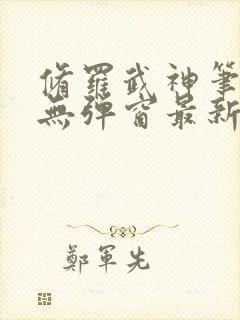 脩羅武神筆
無彈窗最新
鄭軍先